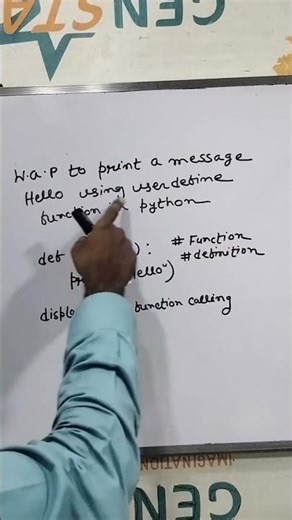 CEN STA
W.a.P to print a message
Hello using userdefine
function python
def ): # Function
# definition
ello")
function calling
IMAGINATION
CEN